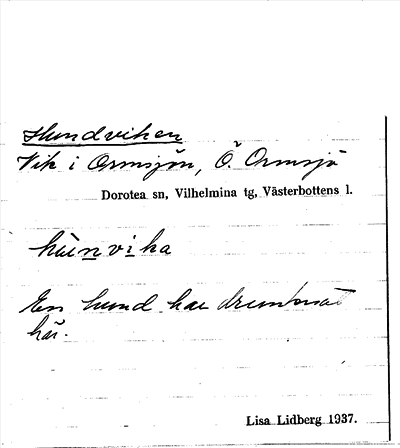 Hundviken
Vik i Ormsjön, Ö. Ormsjö
Dorotea sn, Vilhelmina tg, Västerbottens l.
hùnvika
En hund har drunknat
här.
Lisa Lidberg 1937.